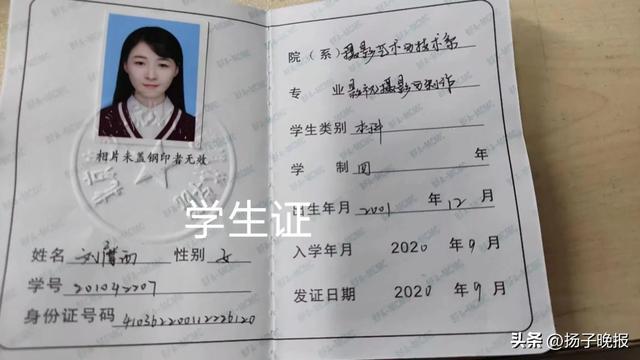 相片未盖钢印者无效
学生证
姓名 刘 性别 女
学号 201042207
身份证号码 410362200112226120
院（系）摄影艺术与技术系
专 业 影视摄影与制作
学生类别 本科
学 制 四 年
出生年月 2001 年 12 月
入学年月 2020 年 9 月
发证日期 2020 年 9 月
头条 @扬子晚报